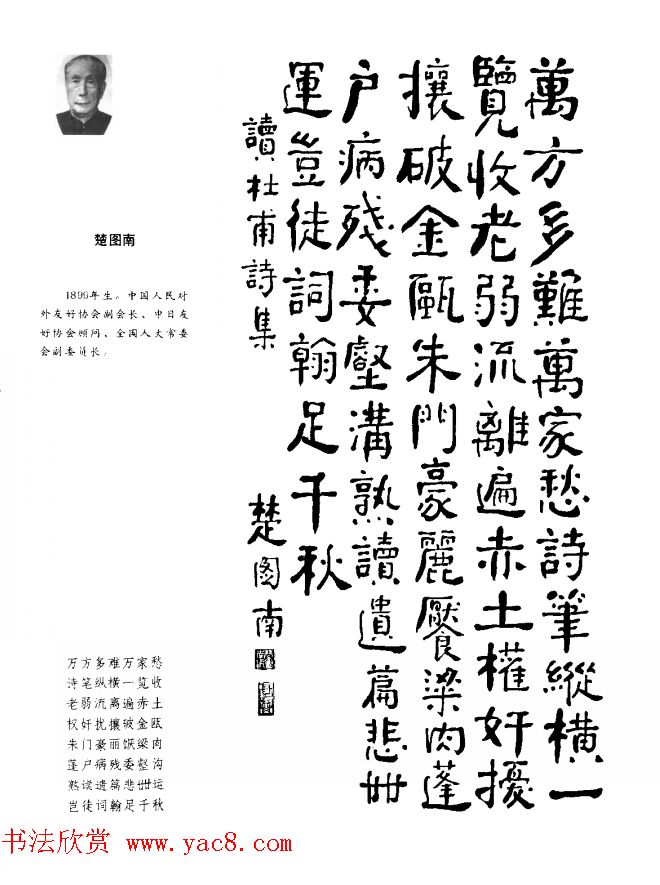 楚图南
1899年生。中国人民对
外友好协会副会长、中日友
好协会顾问、全国人大常委
会副委员长。
萬方多難萬家愁詩筆縱橫一
覽收老弱流離遍赤土權奸擾
攘破金甌朱門豪麗饜梁肉蓬
户病殘委壑溝熟讀遺篇悲丗
運豈徒詞翰足千秋
讀杜甫詩集
楚图南
万方多难万家愁
诗笔纵横一览收
老弱流离遍赤土
权奸扰攘破金瓯
朱门豪丽餍梁肉
蓬户病残委壑沟
熟读遗篇悲丗运
岂徒词翰足千秋
书法欣赏 www.yac8.com